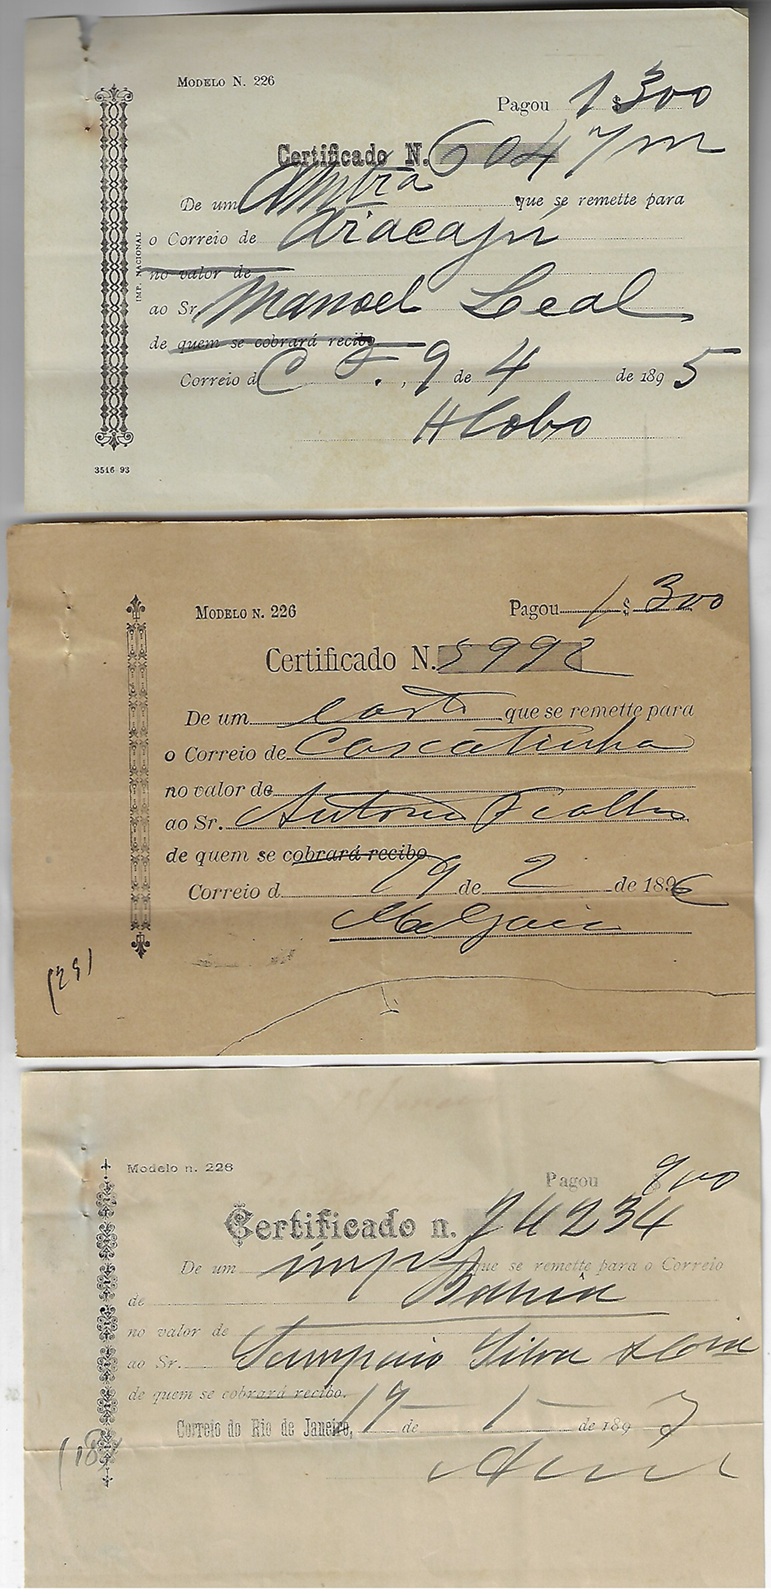 MODELO N. 226
Pagou 1 $ 300
Certificado N. 6047 m
De um Amtra que se remette para
o Correio de Aracajú
no valor de
ao Sr. Manoel Leal
de quem se cobrará recibo
Correio d C. , 9 de 4 de 1895
HLobo
IMP. NACIONAL
3516 93
MODELO N. 226
Pagou 1 $ 300
Certificado N. 5992
De um carta que se remette para
o Correio de Cascatinha
no valor de
ao Sr. Antonio Fialho
de quem se cobrará recibo
Correio d 29 de 2 de 1896
(29)
Modelo n. 226
Pagou $ 900
Certificado n. 24234
De um imp que se remette para o Correio
de Bahia
no valor de
ao Sr. Sampaio Silva & Cia
de quem se cobrará recibo.
Correio do Rio de Janeiro, 19 de 1 de 1897